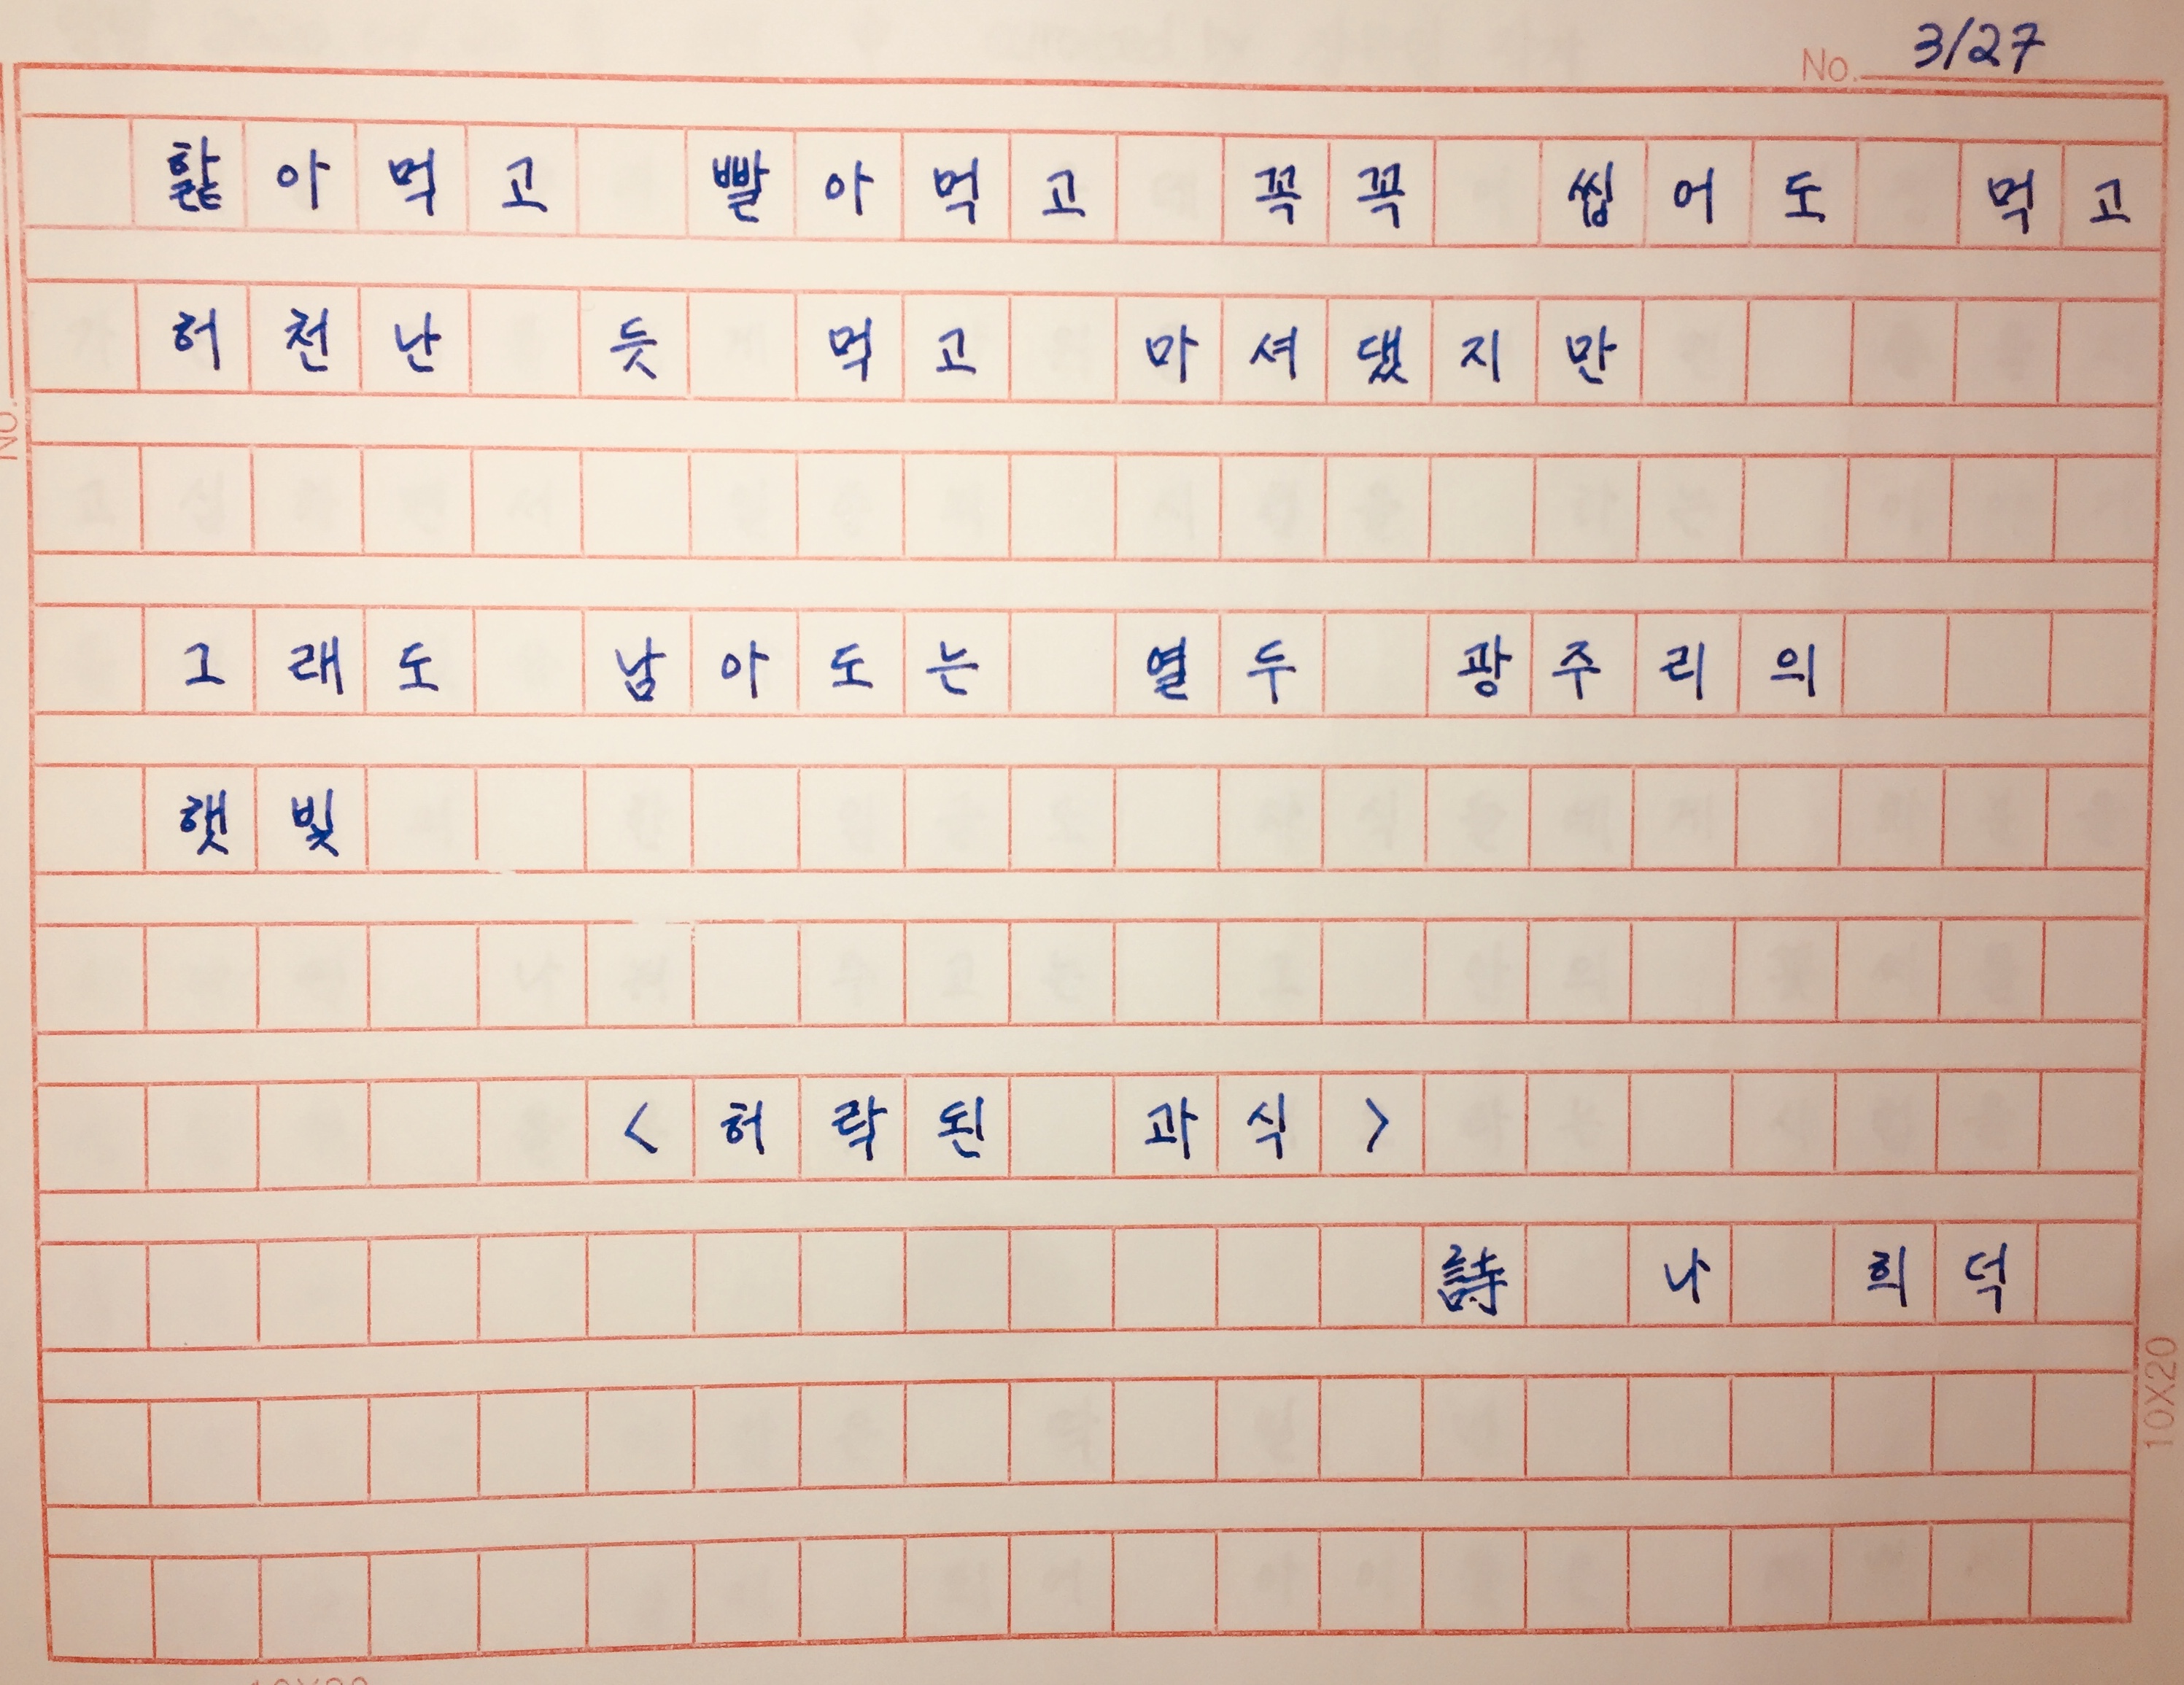 No. 3/27
핥아먹고 빨아먹고 꼭꼭 씹어도 먹고
허천난 듯 먹고 마셔댔지만
그래도 남아도는 열두 광주리의
햇빛
<허락된 과식>
詩 나 희덕
10X20
No.
10X20